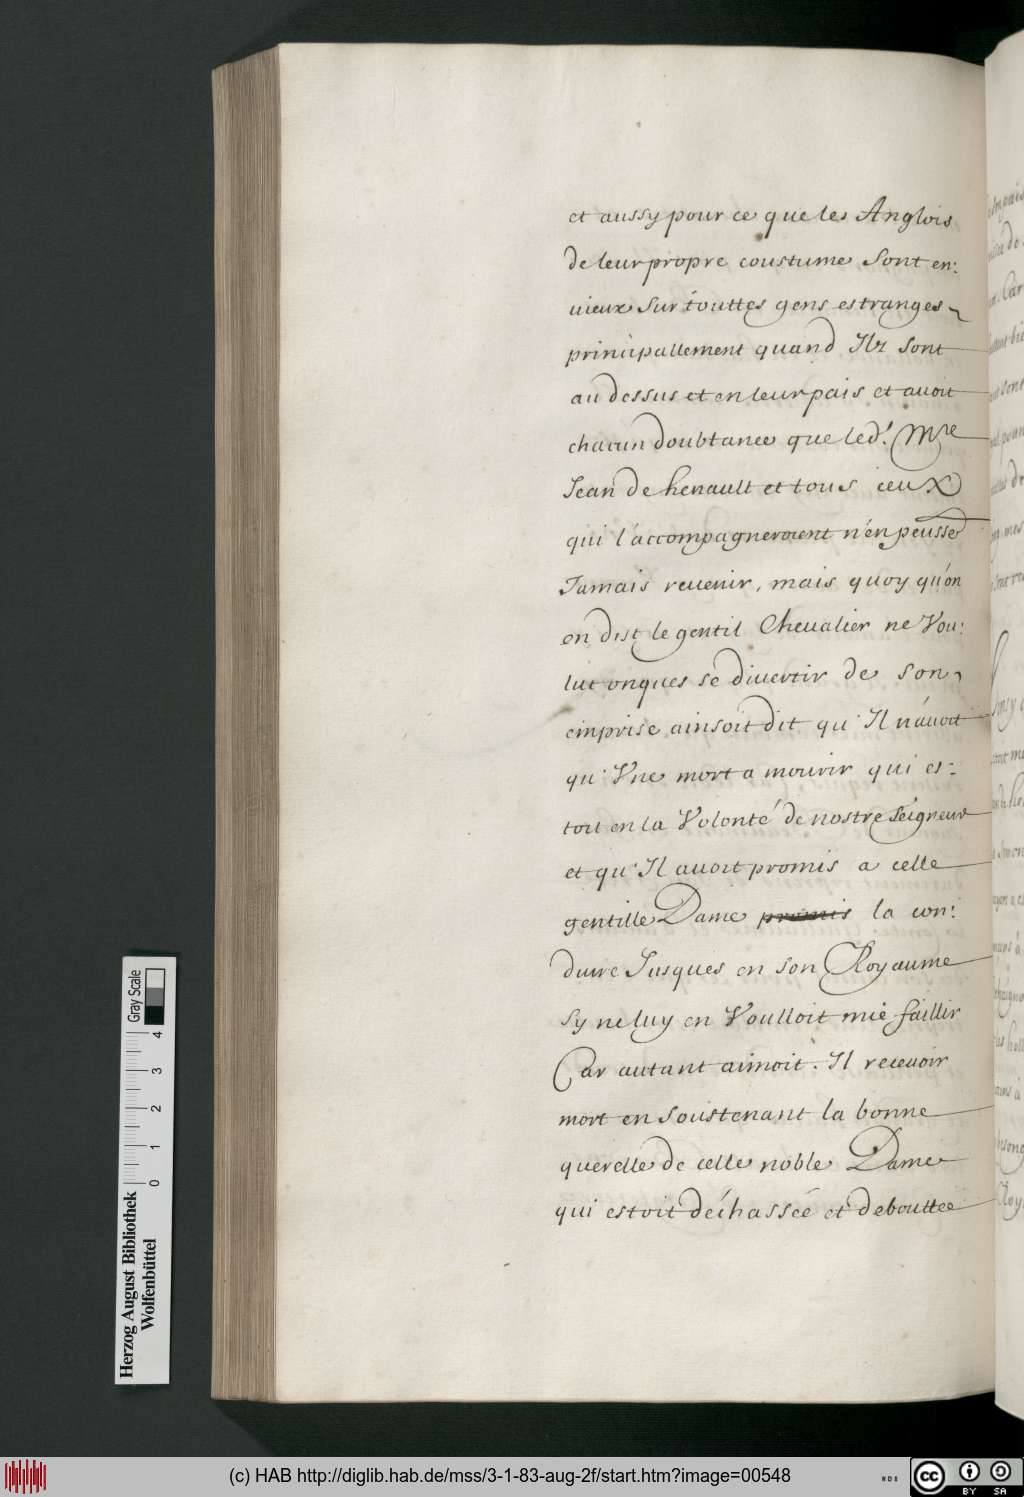 et aussy pour ce que les Anglois
de leur propre coustume sont en:
uieux sur touttes gens estranges
principallement quand Ilz sont
au dessus et en leur pais et auoit
chacun doubtance que led.t Mre
Jean de henault et tous ceux
qui l'accompagneroient n'en peusse
Jamais reuenir, mais quoy qu'on
en dist le gentil Cheualier ne Vou:
lut onques se diuertir de son
emprise ainsoit dit qu'Il n'auoit
qu'Vne mort a mourir qui es:
toit en la Volonté de nostre Seigneur
et qu'Il auoit promis a celle
gentille Dame promis la con:
duire Jusques en son Royaume
sy ne luy en Voulloit mie faillir
Car autant aimoit Il receuoir
mort en soustenant la bonne
querelle de celle noble Dame
qui estoit déchassée et deboutteé
Gray Scale
0 1 2 3 4
Herzog August Bibliothek
Wolfenbüttel
(c) HAB http://diglib.hab.de/mss/3-1-83-aug-2f/start.htm?image=00548
cc BY SA